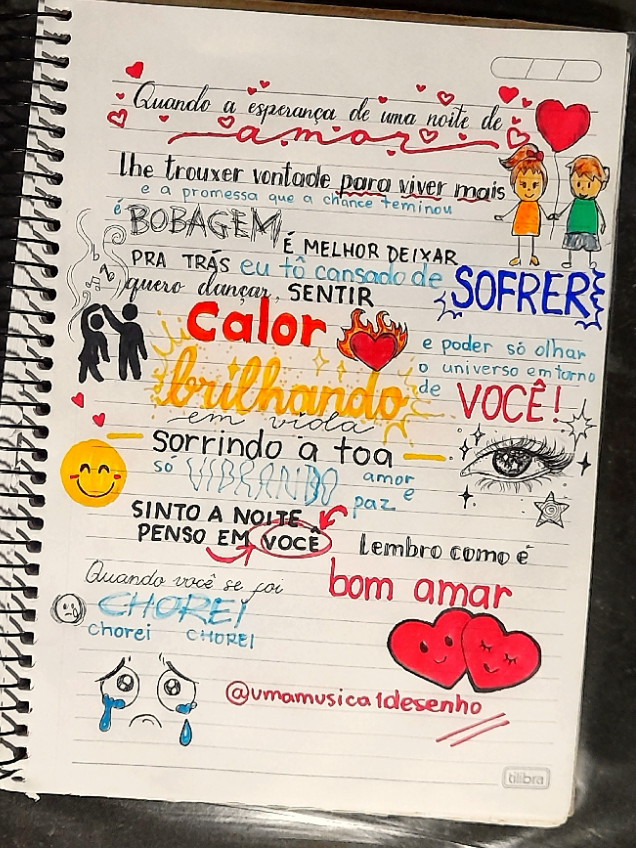 Quando a esperança de uma noite de
amor
lhe trouxer vontade para viver mais
e a promessa que a chance teminou
é BOBAGEM É MELHOR DEIXAR
PRA TRÁS eu tô cansado de SOFRER
quero dançar, SENTIR
Calor e poder só olhar
o universo em torno
brilhando de VOCÊ!
em vida
sorrindo a toa
só VIBRANDO amor
e
paz
SINTO A NOITE
PENSO EM VOCÊ Lembro como é
Quando você se foi bom amar
CHOREI
chorei CHOREI
@umamusica1desenho
tilibra